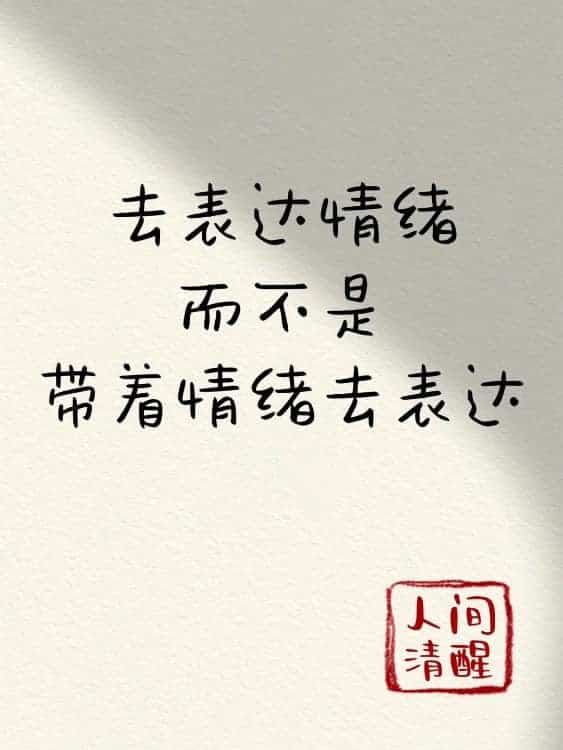 去表达情绪
而不是
带着情绪去表达
人间
清醒